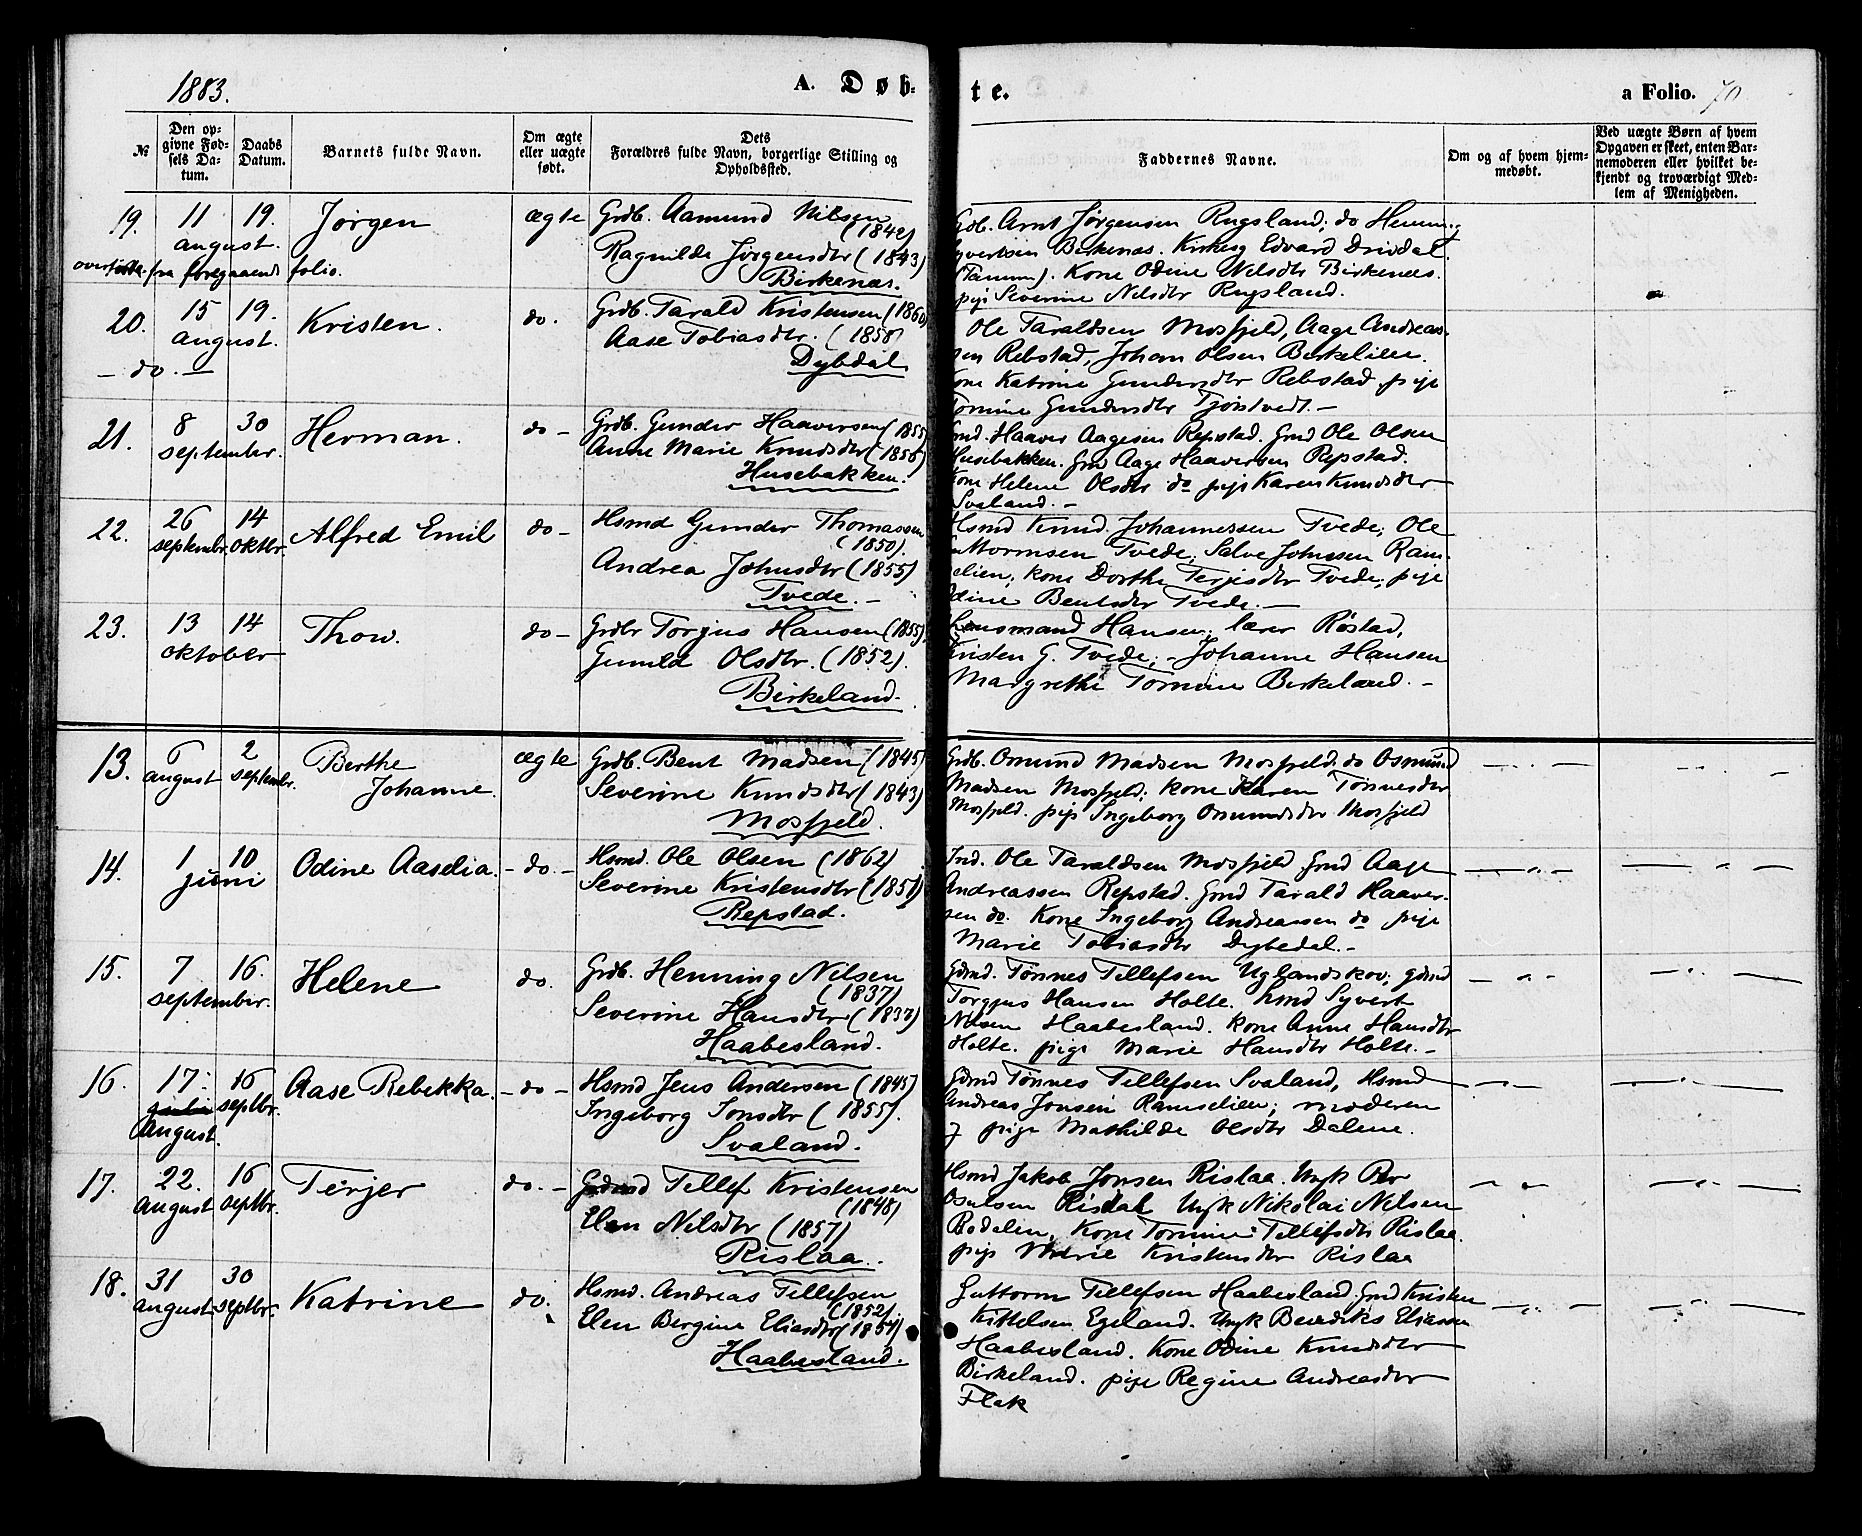 1883.
A. Døb-
te.
a Folio. 70
№
Den op-
givne Fød-
sels Da-
tum.
Daabs
Datum.
Barnets fulde Navn.
Om ægte
eller uægte
født.
Dets
Forældres fulde Navn, borgerlige Stilling og
Opholdssted.
Faddernes Navne.
Om og af hvem hjem-
medøbt.
Ved uægte Børn af hvem
Opgaven er skeet, enten Bar-
nemoderen eller hvilket be-
kjendt og troværdigt Med-
lem af Menigheden.
19. 11 19. Jørgen ægte Grdb. Aamund Nilsen
august. (1842)
fra foregaaende folio. Ragnilde Jørgensdtr (1843)
Birkenæs.
Gdb. Arnt Jørgensen Rugsland; do Henning
Birkenæs. Kirkesg Edvard Drivdal
Kone Odine Nilsdtr Birkenæs.
pige Severine Nilsdtr Rugsland.
20. 15 19. Kristen. do. Grdb. Tarald Kristensen (1860)
august. Aase Tobiasdtr. (1858)
– do. – Dybdal
Ole Taraldsen Mosfjeld, Aage Andreas-
sen Rebstad, Johan Olsen Birkelien.
Kone Katrine Gundersdtr Rebstad pige
Tomine Gundersdtr Tjørstvedt. –
21. 8 30 Herman. do – Grdb. Gunder Haaversen (1855)
september. Anne Marie Knudsdtr (1856)
Husebakken.
Gmd. Haaver Aagesen Repstad. Gmd Ole Olsen
Husebakken. Gmd Aage Haaversen Repstad.
Kone Helene Olsdtr do pige Karen Knudsdtr
Svaland. –
22. 26 14 Alfred Emil do – Hsmd Gunder Thomassen
septembr. oktbr. (1850).
Andrea Johnsdtr (1855)
Tvede. –
Hsmd Knud Johannessen Tvede; Ole
Guttormsen Tvede; Salve Johnssen Ram-
selien; kone Dorthe Terjesdtr Tvede; pige
Odine Bentsdtr Tvede. –
23. 13 14 Thow. do – Grdbr Torjus Hansen (1855).
oktober Gunild Olsdtr. (1852).
Birkeland.
Lensmand Hansen; lærer Røstad,
Kristen G. Tvede; – Johanne Hansen
Margrethe Tomine Birkeland. –
13. 6 2 Berthe ægte Grdb. Bent Madsen (1845)
august septembr. Johanne. Severine Knudsdtr (1843)
Mosfjeld.
Grdb. Omund Madsen Mosfjeld. do Osmund
Madsen Mosfjeld; kone Karen Tønnesdtr
Mosfjeld. pige Ingeborg Omundsdtr Mosfjeld
14. 1 10 Odine Aaselia. – do. – Hsmd. Ole Olsen (1862)
juni Severine Kristensdtr (1851)
Repstad.
Ole Taraldsen Mosfjeld Gmd Aage
Andreassen Repstad. Gmd Tarald Haaver-
sen do. Kone Ingeborg Andreassen do pige
Marie Tobiasdtr Dybedal. –
15. 7 16. Helene do. Grdb. Henning Nilsen
september. (1837)
Severine Hansdtr (1837)
Haabesland.
Gdmd. Tønnes Tellefsen Uglandskov; gdmd
Torgjus Hansen Holte. hsmd Syvert
Nilsen Haabesland. kone Anne Hansdtr
Holte. pige Marie Hansdtr Holte. –
16. 17. 16 Aase Rebekka. – do – Hsmd Jens Andersen (1845)
juli septbr. Ingeborg Jonsdtr (1855).
August. Svaland.
Gdmd Tønnes Tellefsen Svaland, Hsmd
Andreas Jonsen Ramselien; moderen
og pige Mathilde Olsdtr Dalene.
17. 22. 16 Terjer do. – Gdmd Tellef Kristensen
august septbr. (1848)
Elen Nilsdtr (1857)
Rislaa.
Hsmd Jakob Jonsen Rislaa. Ungk Per
Osulsen Risdal Ungk Nikolai Nilsen
Rodalen, Kone Tomine Tellefsdtr Rislaa.
pige Marie Kristensdtr Rislaa
18. 31 30 Katrine do. Hsmd. Andreas Tellefsen
august septbr. (1852).
Elen Bergine Eliasdtr (1854)
Haabesland.
Guttorm Tellefsen Haabesland. Gmd Kristen
Kittelsen Egeland. Ungk Bendiks Eliassen
Haabesland. Kone Odine Knudsdtr
Birkeland. pige Regine Andreasdtr
Flak